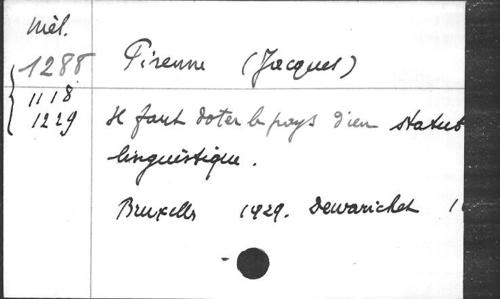 Mél.
1288
1118
1229
Pirenne (Jacques)
Il faut doter le pays d'un statut
linguistique.
Bruxelles 1929. Dewarichet